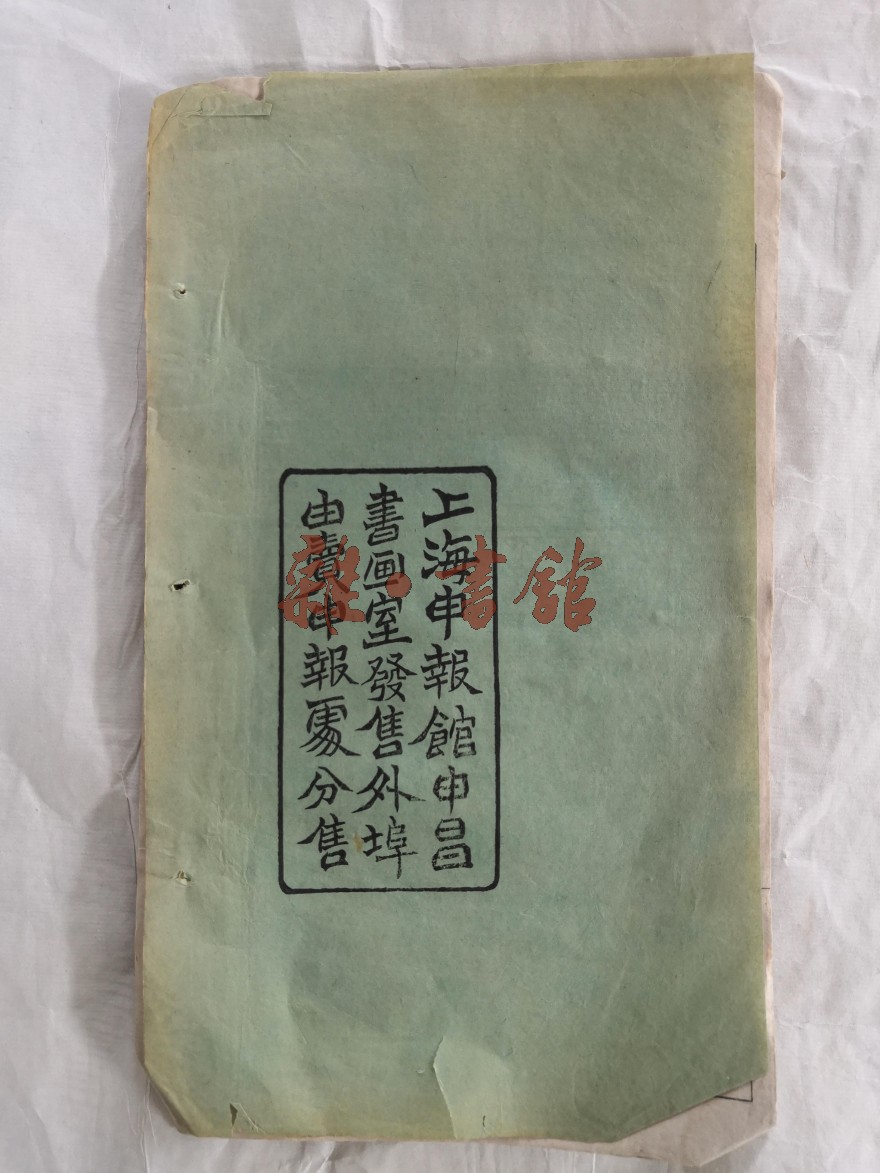 上海申報館申昌
書画室發售外埠
由賣申報處分售
雜·書館